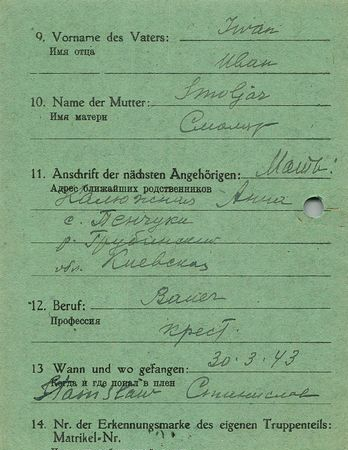 9. Vorname des Vaters: Iwan
Имя отца
Иван
10. Name der Mutter: Smoljar
Имя матери
Смоляр
11. Anschrift der nächsten Angehörigen: Мать:
Адрес ближайших родственников
Калюжная Анна
с. Пенчуки
р. Грубинский
обл. Киевская
12. Beruf: Bauer
Профессия
крест.
13 Wann und wo gefangen: 30.3.43
Когда и где попал в плен
Stanislaw Станислов
14. Nr. der Erkennungsmarke des eigenen Truppenteils:
Matrikel-Nr.